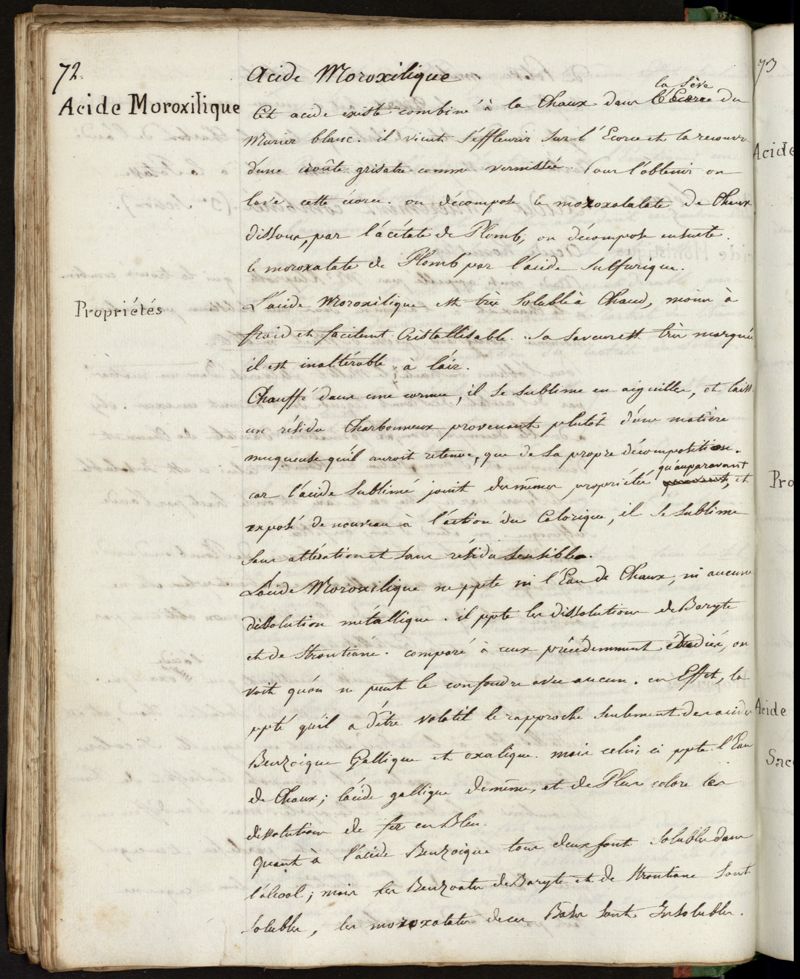 72.
73
Acide Moroxilique
Acide Moroxilique
la Sève
Cet acide existe combiné à la Chaux dans l'Ecorce du
Murier blanc. il vient s'éffleurir sur l'Ecorce et la recouvre
d'une croûte grisatre comme vernissée. Pour l'obtenir on
lave cette écorce. on décompose le moroxalate de Chaux
dissous, par l'acétate de Plomb, on décompose ensuite
le moroxalate de Plomb par l'acide Sulfurique.
Propriétés
L'acide Moroxilique est très Soluble à Chaud, moins à
froid et facilemt Cristallisable. Sa Saveur est très marquée
il est inaltérable à l'air.
Chauffé dans une cornue, il se sublime en aiguilles, et laisse
un résidu Charbonneux provenant plutôt d'une matière
muqueuse qu'il auroit retenue, que de Sa propre décomposition.
car l'acide Sublimé jouit des mêmes propriétés qu'auparavant, et
exposé de nouveau à l'action du Calorique, il se sublime
Sans altération et Sans résidu Sensible.
L'acide Moroxilique ne ppte ni l'Eau de Chaux, ni aucune
dissolution métallique. il ppte les dissolutions de Baryte
et de Strontiane. comparé à ceux précédemment étudiés, on
voit qu'on ne peut le confondre avec aucun. en Effet, la
ppté qu'il a d'être volatil le rapproche seulement des acides
Benzoique Gallique et oxalique. mais celui ci ppte l'Eau
de Chaux; l'acide gallique de même, et de Plus colore les
dissolutions de fer en Bleu.
Quant à l'acide Benzoique tous deux sont Solubles dans
l'alcool; mais les Benzoates de Baryte et de Strontiane Sont
Solubles, les moroxalates de ces Bases Sont Insolubles.
Acide
Pro
Acide
Sac